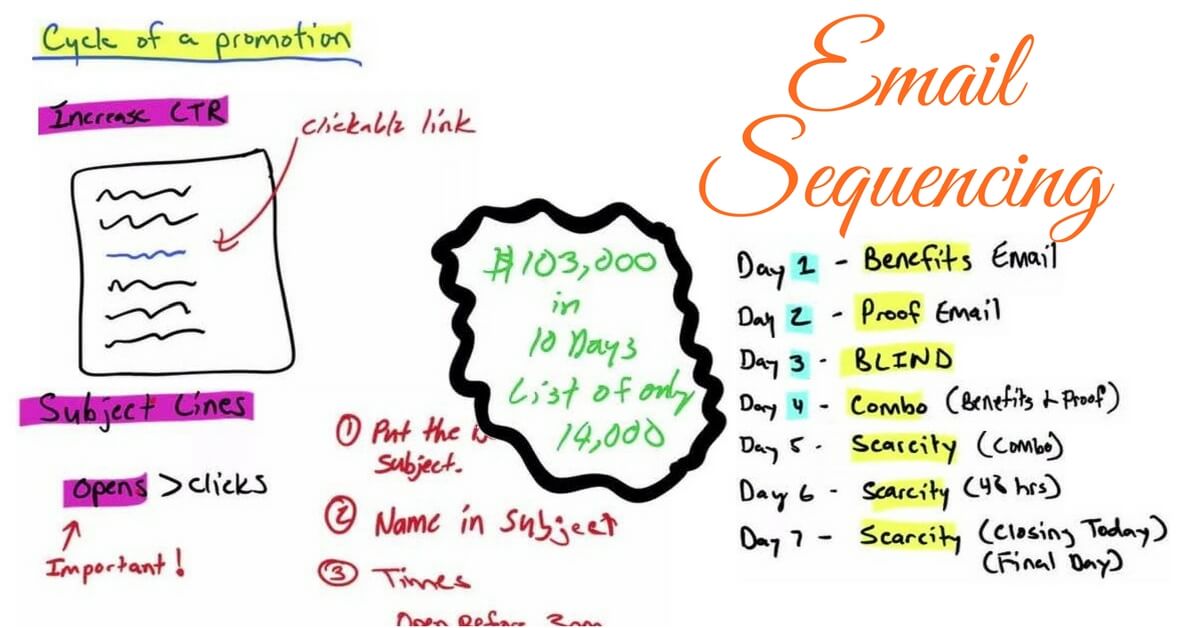 Cycle of a promotion
Increase CTR
clickable link
Subject Lines
Opens > clicks
Important!
① Put the
subject.
② Name in subject
③ Times
Open Before 3pm
$103,000
in
10 Days
List of only
14,000
Email
Sequencing
Day 1 - Benefits Email
Day 2 - Proof Email
Day 3 - BLIND
Day 4 - Combo (Benefits & Proof)
Day 5 - Scarcity (Combo)
Day 6 - Scarcity (48 hrs)
Day 7 - Scarcity (Closing Today)
(Final Day)